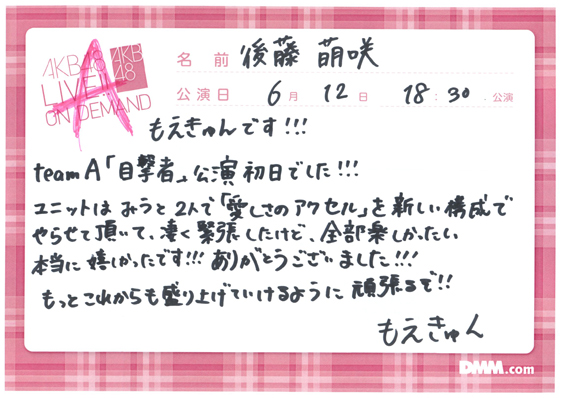 AKB48
LIVE!!
ON DEMAND
AKB
48
名前 後藤 萌咲
公演日 6月 12日 18:30 公演
もえきゅんです!!!
team A「目撃者」公演初日でした!!!
ユニットは みうと 2人で「愛しさのアクセル」を 新しい 構成で
やらせて頂いて、凄く 緊張したけど、全部楽しかったい
本当に 嬉しかったです!!! ありがとうございました!!!
もっと これからも盛り上げていけるように 頑張るぞ!!
もえきゅん
DMM.com